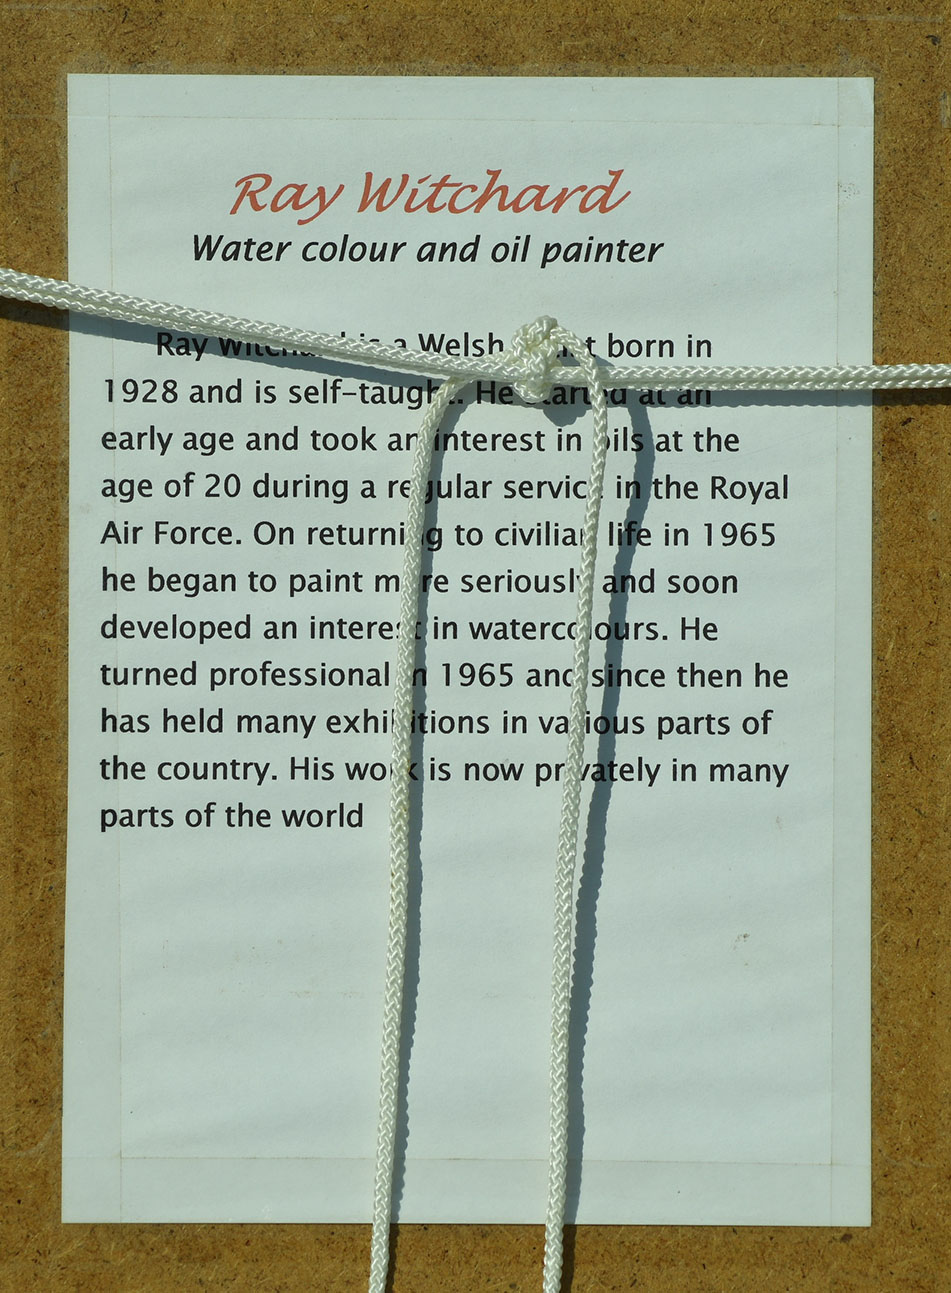 Ray Witchard
Water colour and oil painter
Ray Witchard is a Welsh artist born in
1928 and is self-taught. He started at an
early age and took an interest in oils at the
age of 20 during a regular service in the Royal
Air Force. On returning to civilian life in 1965
he began to paint more seriously and soon
developed an interest in watercolours. He
turned professional in 1965 and since then he
has held many exhibitions in various parts of
the country. His work is now privately in many
parts of the world